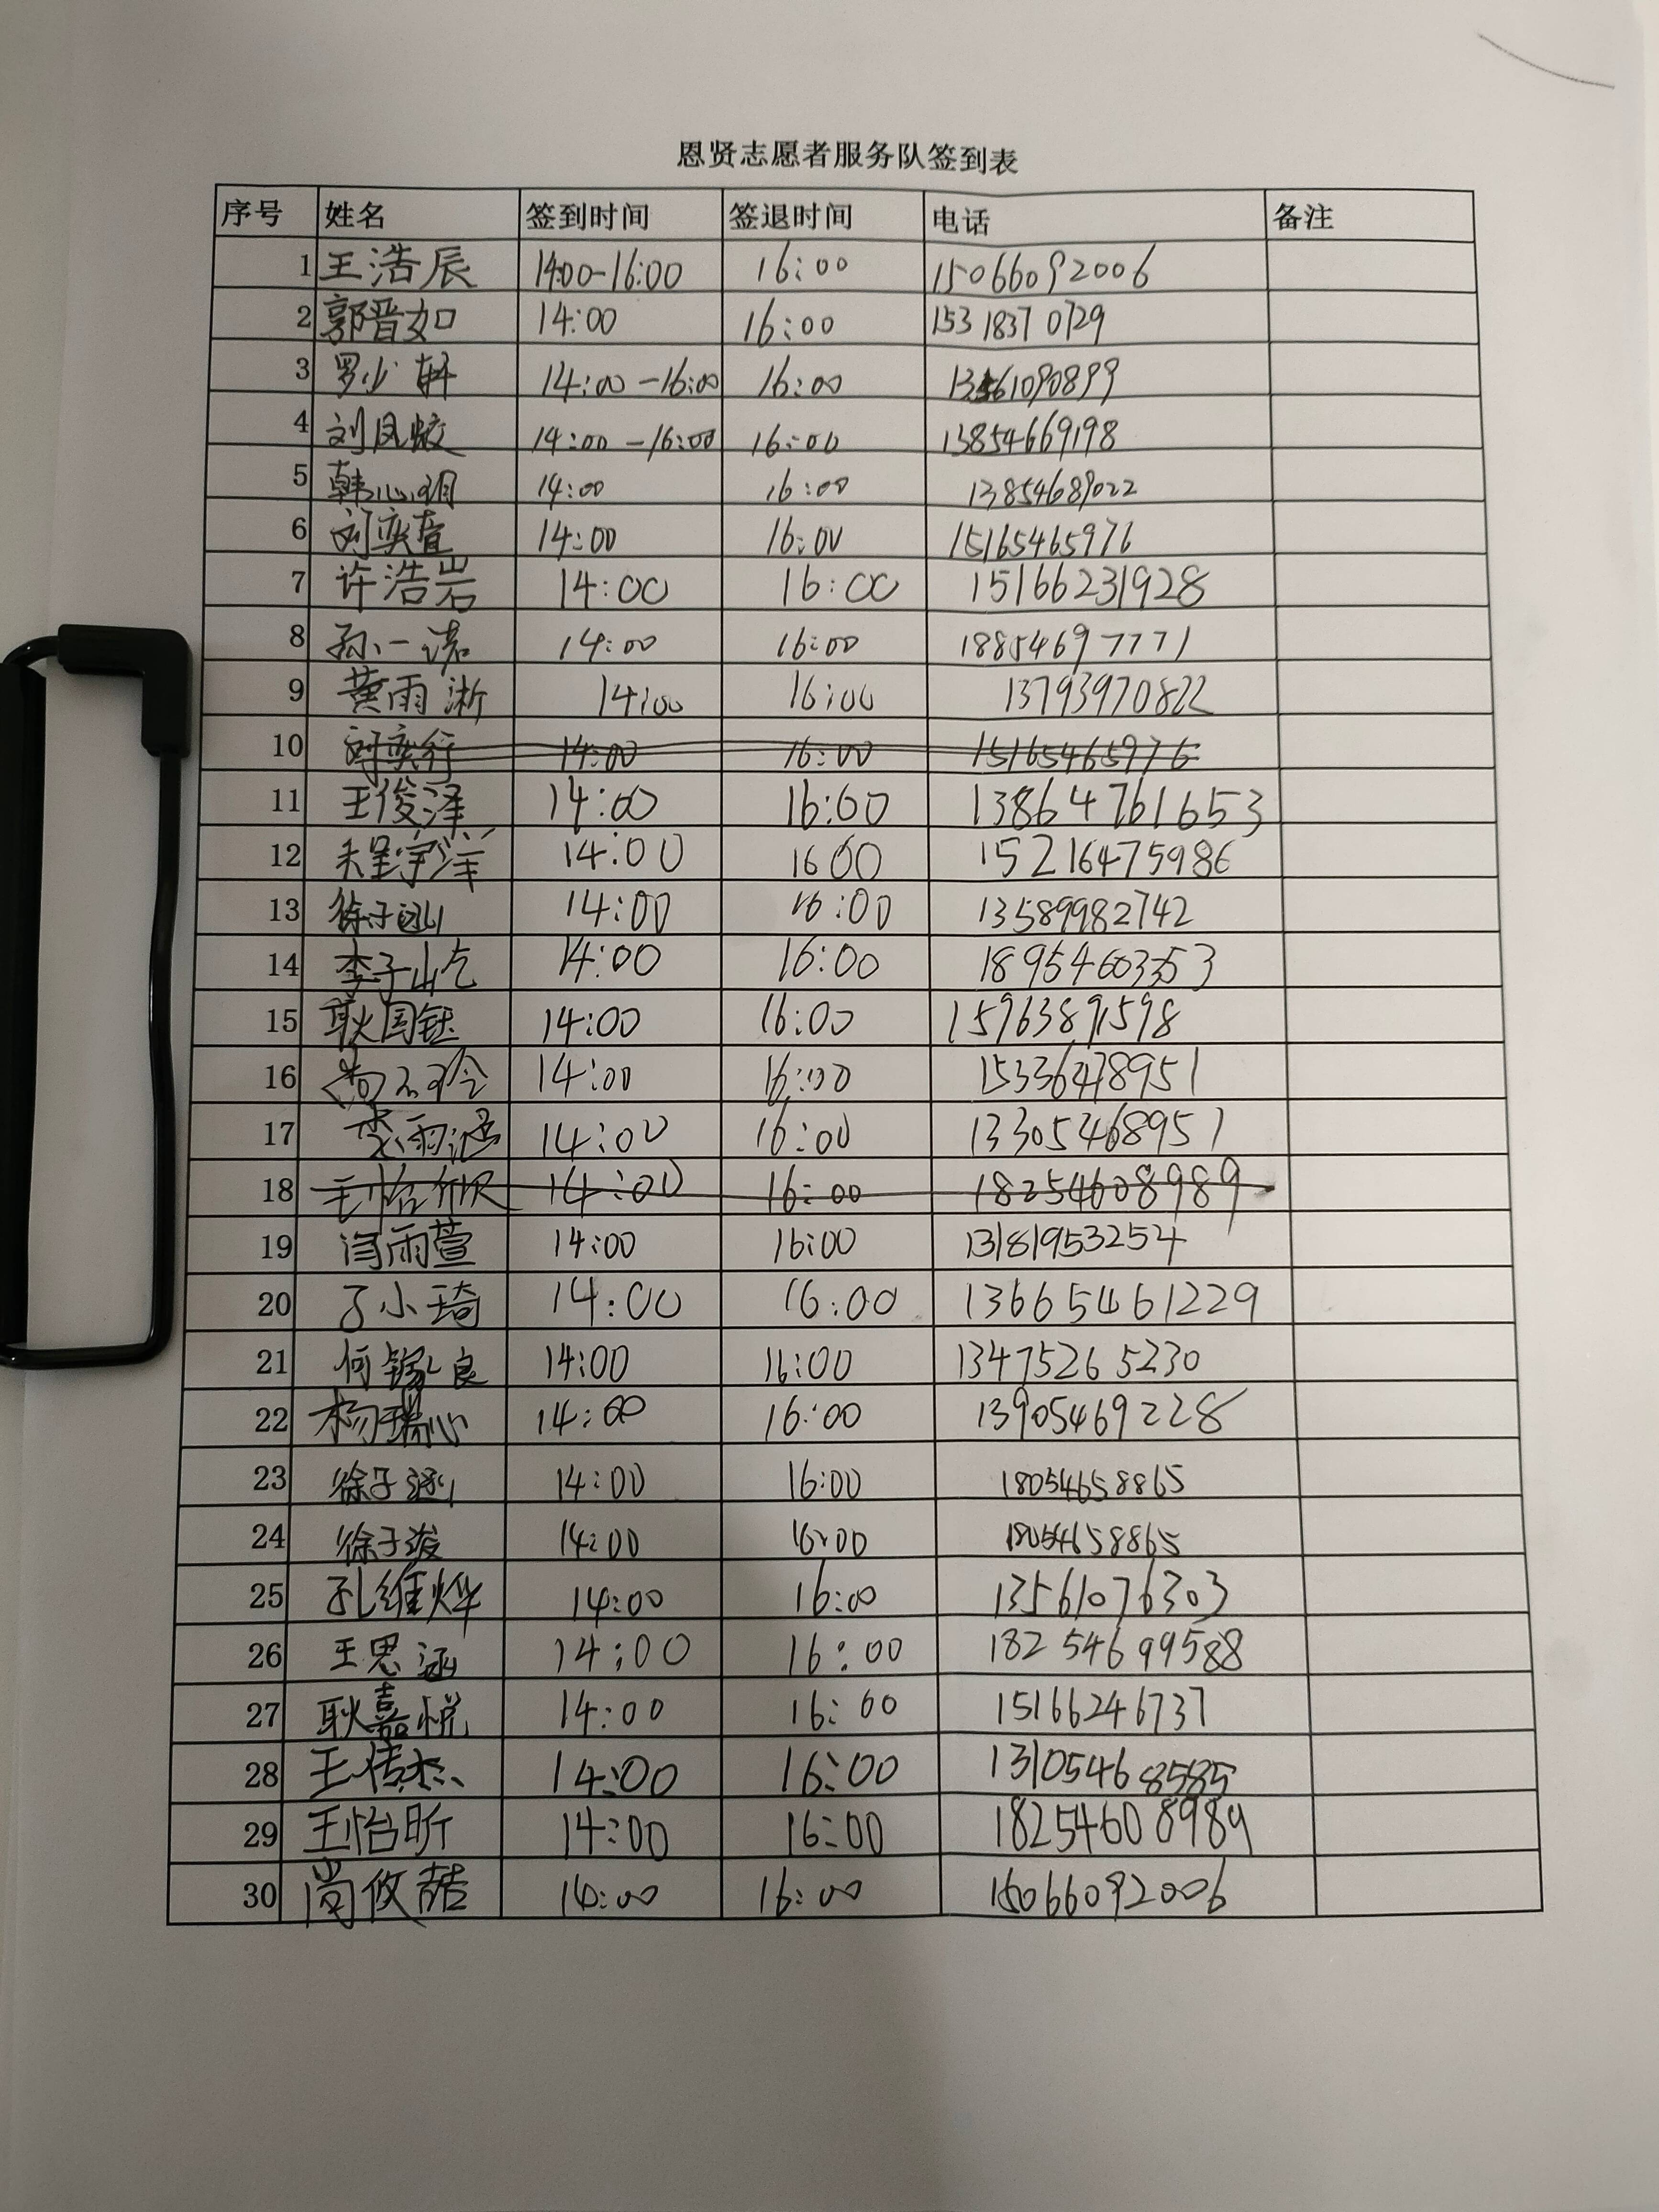 恩贤志愿者服务队签到表
序号 姓名 签到时间 签退时间 电话 备注
1 王浩辰 14:00-16:00 16:00 15066092006
2 郭晋如 14:00 16:00 15318370729
3 罗少轩 14:00-16:00 16:00 13561090899
4 刘凤蛟 14:00-16:00 16:00 13854669198
5 韩心玥 14:00 16:00 13854689022
6 刘奕萱 14:00 16:00 15165465976
7 许浩岩 14:00 16:00 15166231928
8 孙一诺 14:00 16:00 18854697771
9 黄雨淅 14:00 16:00 13793970822
10 刘奕行 14:00 16:00 15165465976
11 王俊泽 14:00 16:00 13864761653
12 宇洋 14:00 16 00 15216475986
13 徐子涵 14:00 16:00 13589982742
14 李子屹 14:00 16:00 18954603353
15 耿国钰 14:00 16:00 15963891598
16 尚 14:00 16:00 15336478951
17 雨涵 14:00 16:00 13305468951
18 王怡欣 14:00 16:00 18254608989
19 闫雨萱 14:00 16:00 13181953254
20 丁小琦 14:00 16:00 13665461229
21 何 良 14:00 16:00 13475265230
22 杨瑞心 14:00 16:00 13905469228
23 徐子涵 14:00 16:00 18054658865
24 徐子浚 14:00 16:00 18054658865
25 孔维烨 14:00 16:00 13561076303
26 王思涵 14:00 16:00 18254699588
27 耿嘉悦 14:00 16:00 15166246737
28 王传杰 14:00 16:00 13105468585
29 王怡昕 14:00 16:00 18254608989
30 尚攸喆 14:00 16:00 15066092006